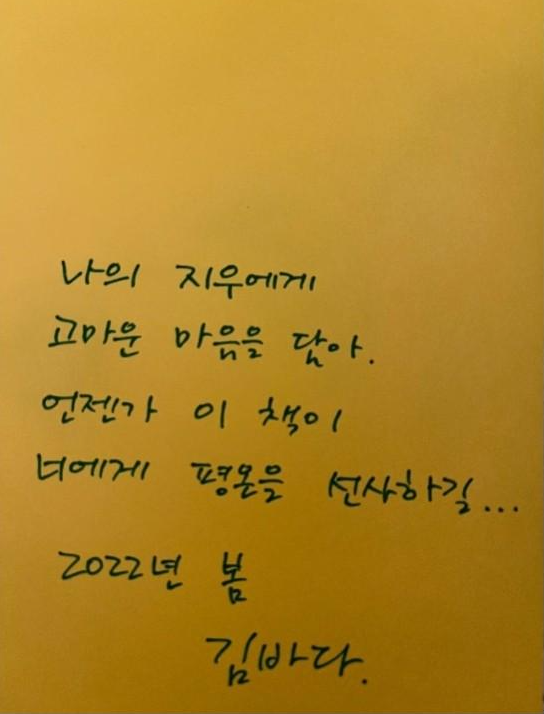 나의 지우에게
고마운 마음을 담아.
언젠가 이 책이
너에게 평온을 선사하길...
2022년 봄
김바다.